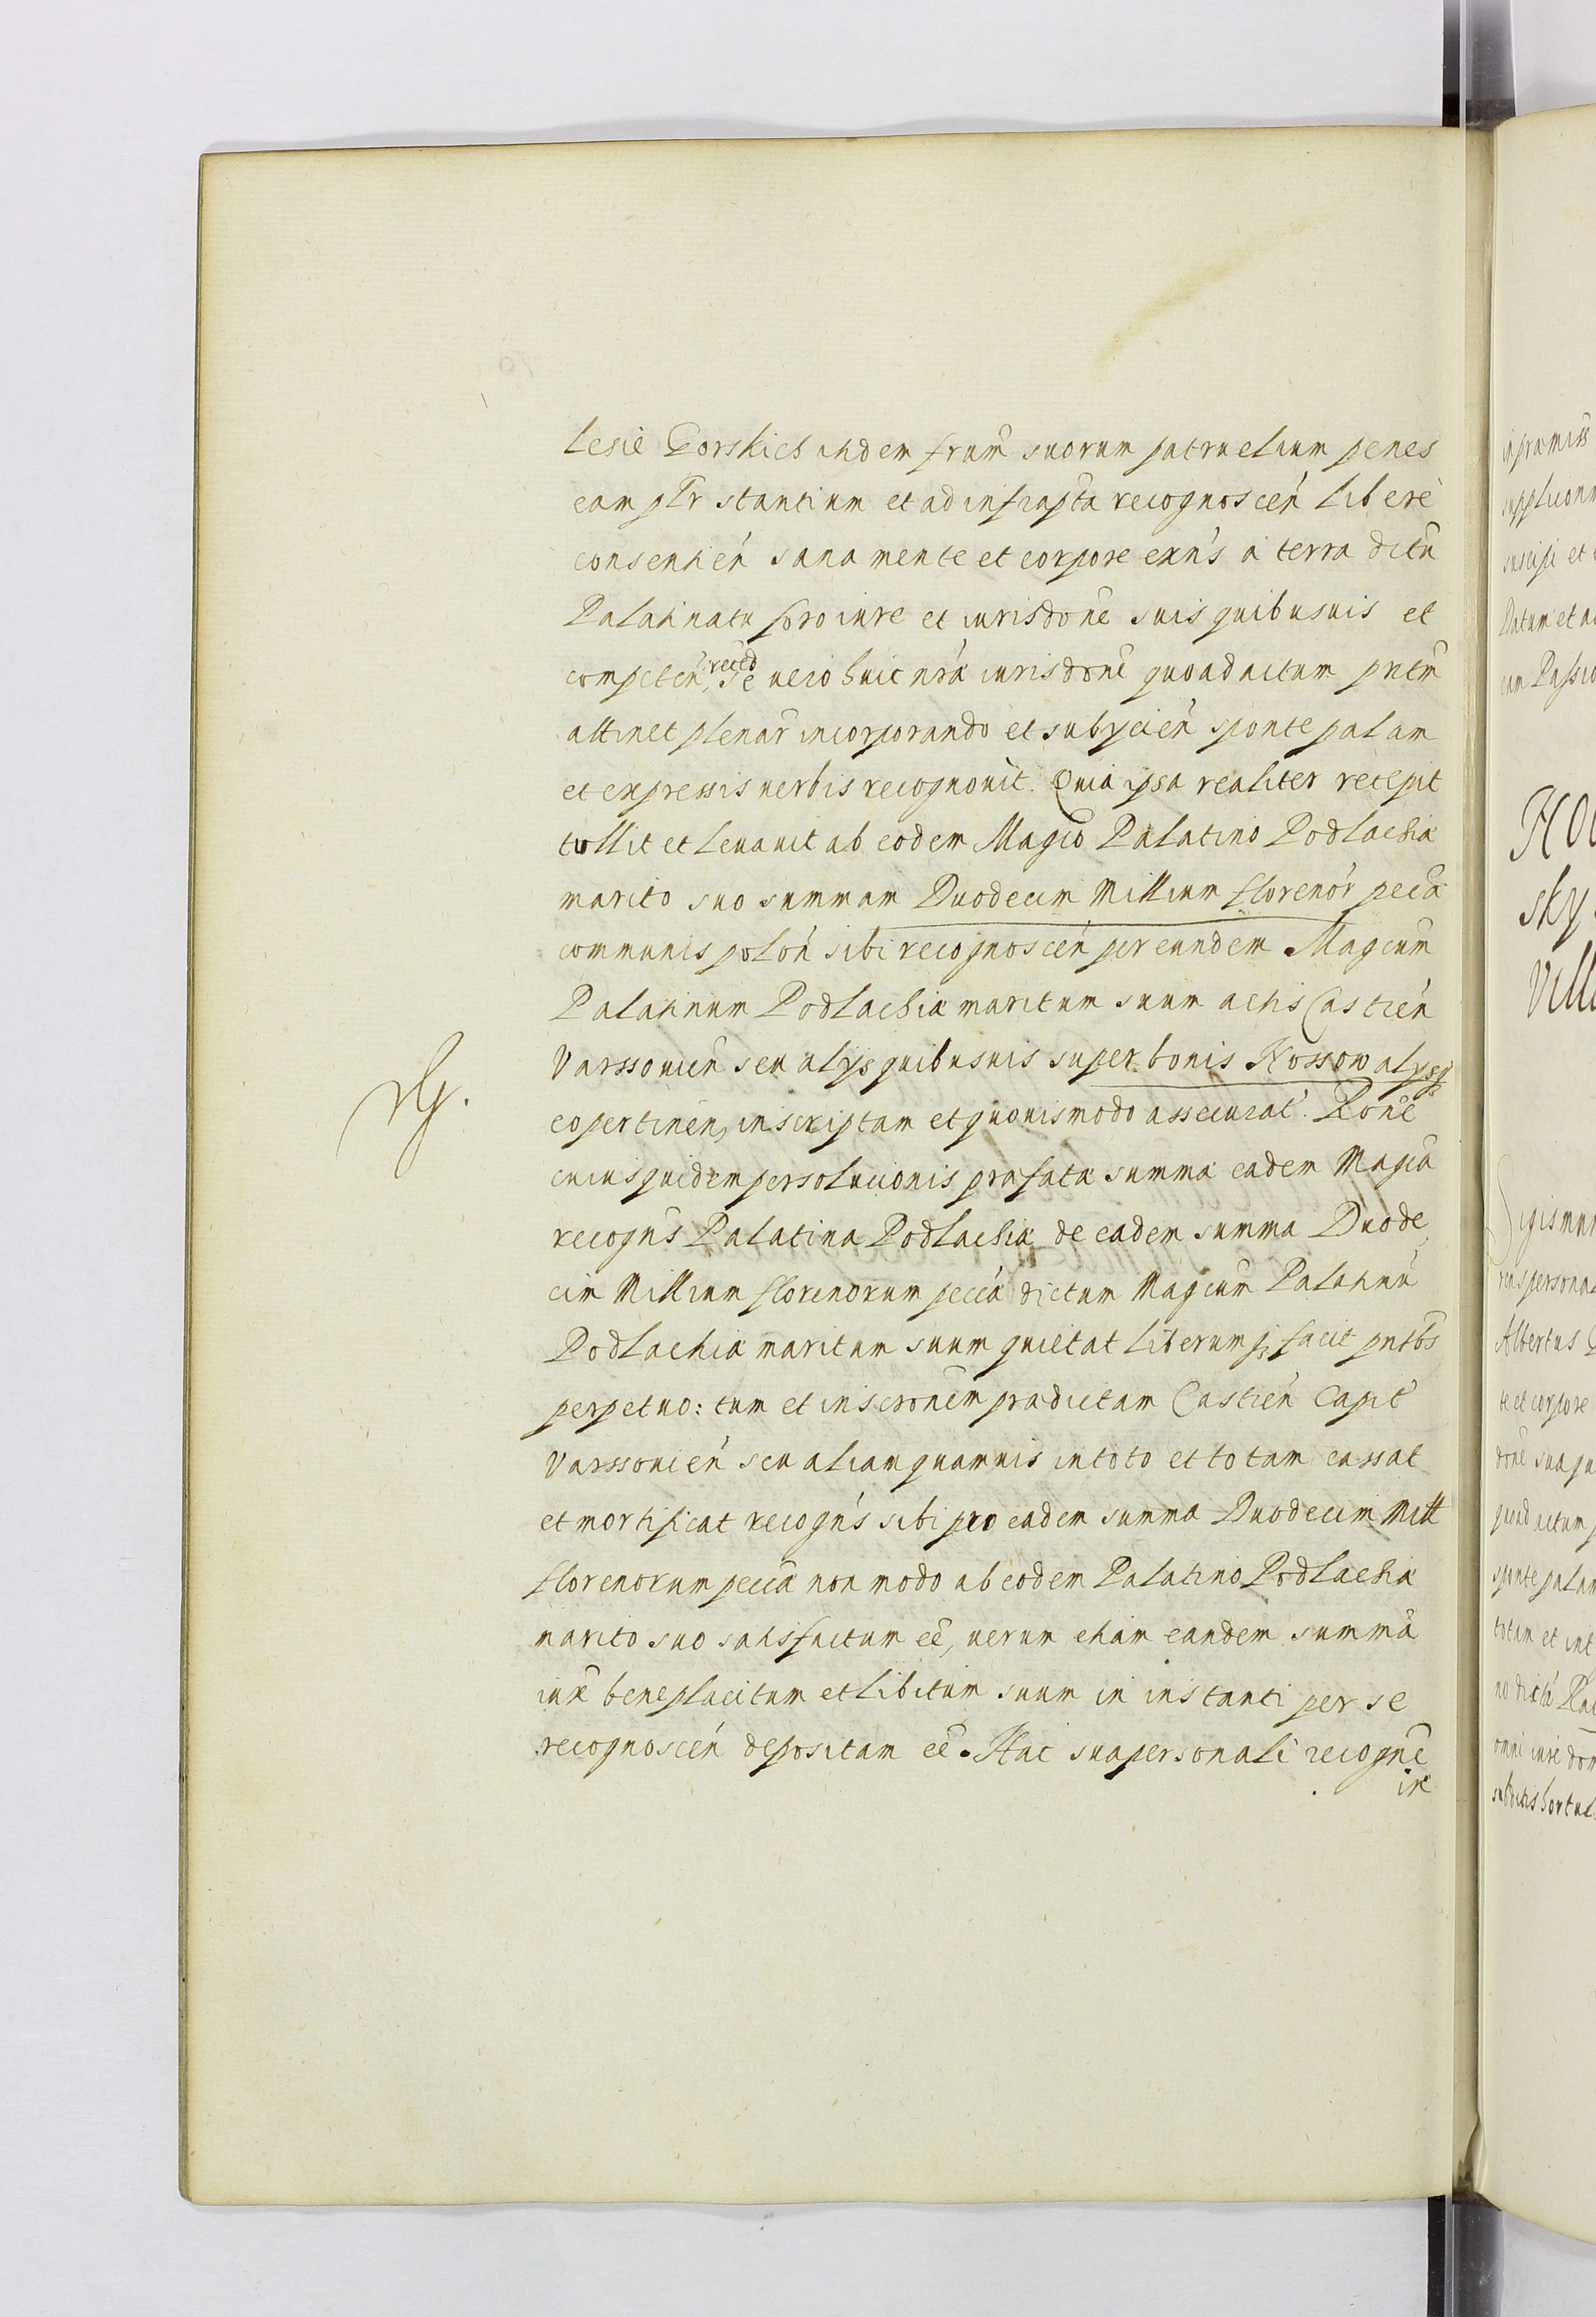 lesie Gorskich itidem frum̃ suorum patruelium penes
eam pt̃r stantium et ad infrapta recognoscen̓ liberè
consentien̓ sana mente et corpore exn̓s à terra dictu
Palatinatu foro iure et iurisdone suis quibusuis et
competen̓, reced̃
se vero huic nrã iurisdonẽ quoad actum pntm̃
attinet plenar̃ incorporando et subyciẽn sponte palam
et expressis uerbis recognouit. Quia ipsa realiter recepit
tullit et leuauit ab eodem Magco Palatino Podlachiæ
marito suo summam Duodecim Millium florenor̓ pecæ̃
communis polon̓ sibi recognoscen̓ per eundem Magcum̃
Palatinum Podlachiæ maritum suum actis Castren̓
Varssouien̓ seu alijs quibusuis super bonis Kossow alysq̃
eo pertinen, inscriptam et quouismodo assecurat̓. Ronẽ
cuius quidem persolucionis præfatæ summæ eadem Magcã
recogñs Palatina Podlachiæ de eadem summa Duode
cim Millium florenorum peccæ̃ dictum Magcum̃ Palatinũ
Podlachiæ maritum suum quietat liberumq; facit pntbs̃
perpetuo: tum et inscronẽm prædictam Castren̓ Capit̃
Varssouien̓ seu aliam quamuis in toto et totam cassat
et mortificat recogn̓s sibi pro eadem summa Duodecim Mill
florenorum peccæ̃ non modo ab eodem Palatino Podlachiæ
marito suo satisfactum eẽ, uerum etiam eandem summã
iux̃ beneplacitum et libitum suum in instanti per se
recognoscen̓ depositam eẽ. Hac sua personali recognẽ
in
inpræmiss
suppliconm
suscipi et
Datum et a
sky
Vill
Sigismun
rens persona
Albertus
te et corpore
donẽ sua qu
quoad actum p
sponte palam
totam et int
omni iure dom
subditis hortul